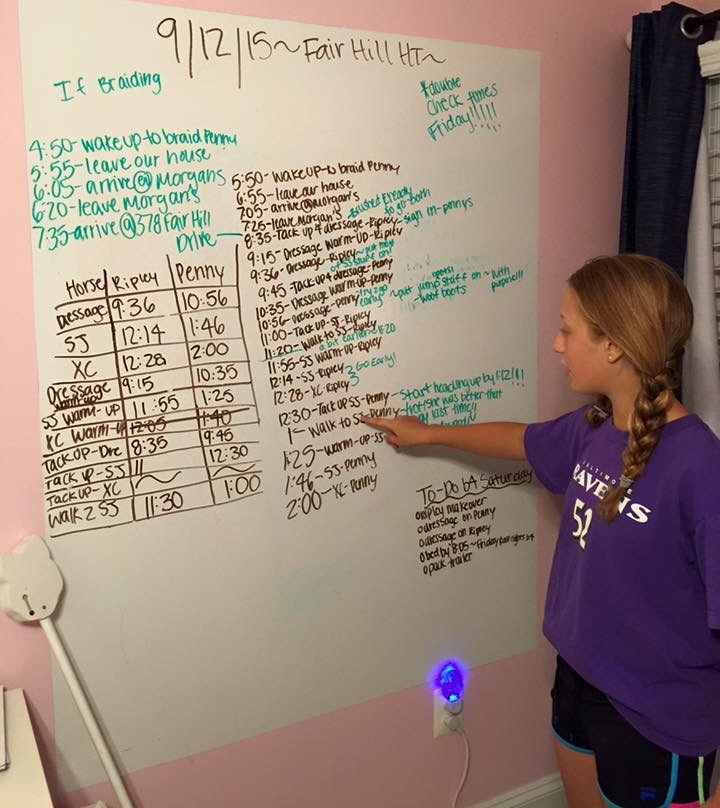 9/12/15~ Fair Hill HT~
If Braiding
*double
check times
Friday!!!!!
4:50-wake up to braid Penny
5:55-leave our house
6:05-arrive@Morgans
6:20-leave Morgan's
7:35-arrive@378 Fair Hill
Drive
5:50-wake up to braid Penny
6:55-leave our house
7:05-arrive@morgan's
7:25-leave Morgan's
8:35-Tack up 4 dressage-Ripley-sign in-pennys
9:15-Dressage Warm-Up-Ripley
9:36-Dressage-Ripley~put most
of SS stuff on!
9:45-Tack up 4 dressage-Penny
10:35-Dressage Warm-up-penny
10:56-Dressage-penny-try 2 go
early ~put jump stuff on~with
-woof boots purpose!!!
11:00-Tack up-SJ-Ripley
11:20-Walk to SJ-Ripley
a bit earlier~11:20
11:55-SJ Warm-up-Ripley
12:14-SJ-Ripley
12:28-XC-Ripley
Go Early!
12:30-Tack up SS-Penny-Start heading up by 1:12!!!
1-Walk to SJ-Penny
last time!!
1:25-warm-up-SJ
1:46-SJ-Penny
2:00-XC-Penny
Horse Ripley Penny
Dressage 9:36 10:56
SJ 12:14 1:46
XC 12:28 2:00
Dressage warm up 9:15 10:35
SJ Warm-up 11:55 1:25
XC Warm-up 12:05 1:40
Tack up-Dre 8:35 9:45
Tack up-SJ 11 12:30
Tack up-XC ~ ~
Walk 2 SJ 11:30 1:00
To-Do b4 Saturday
oripley makeover
odressage on Penny
odressage on Ripley
obed by 8:05~Friday
opack trailer
BALTIMORE
RAVENS
52